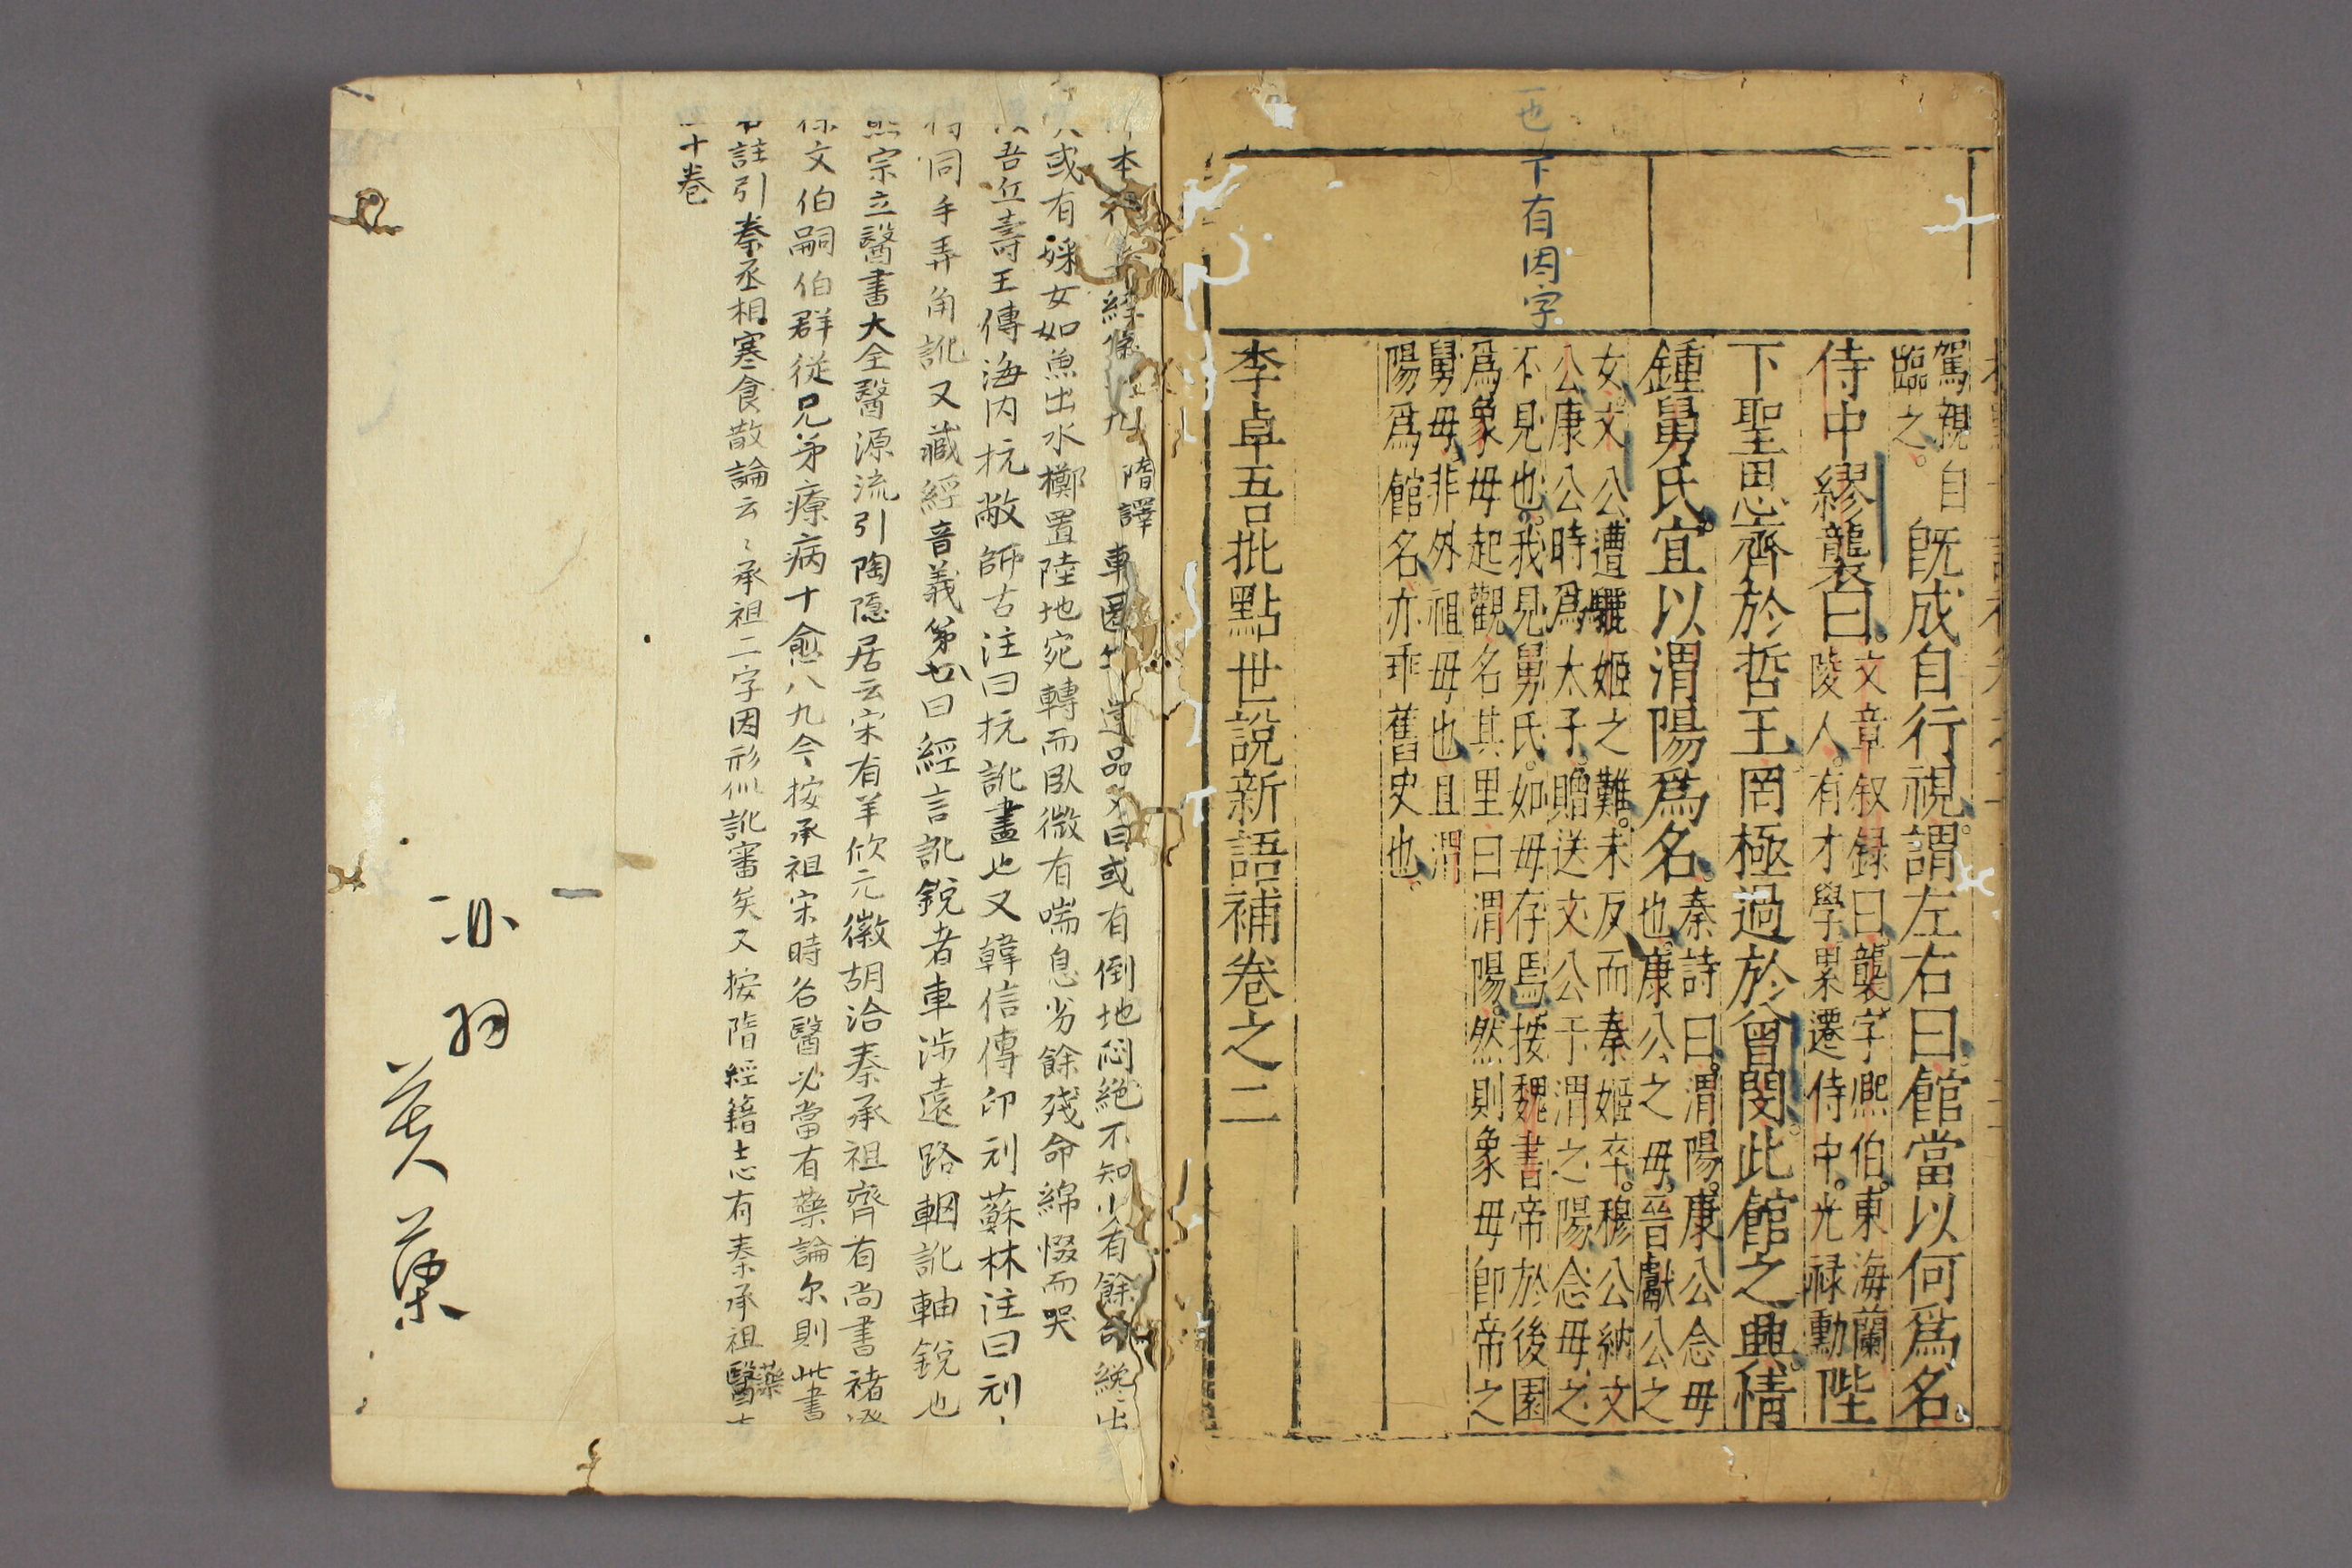 一也
下有因字
駕親自
臨之。
既成自行視。謂左右曰。館當以何爲名。
侍中繆襲曰。
文章叙録曰。襲字熈伯。東海蘭
陵人。有才學。累遷侍中。光禄勳
陛
下聖思齊於哲王。罔極過於曾閔。此館之興。情
鍾舅氏。宜以渭陽爲名。
秦詩曰。渭陽。康公念母
也。康公之母。晉獻公之
女。文公遭驪姬之難。未反而秦姬卒。穆公納文
公。康公時爲太子。贈送文公于渭之陽。念母之
不見也。我見舅氏。如母存焉。按魏書帝於後園
爲象母起觀。名其里曰渭陽。然則象母即帝之
舅母。非外祖母也。且渭
陽爲館名。亦乖舊史也。
李卓吾批點世說新語補卷之二
隋譯
品又曰或有倒地悶絶不知少有餘命纔出
或有婇女如魚出水擲置陸地宛轉而臥微有喘息劣餘殘命綿惙而哭
吾丘壽王傳海内抏敝師古注曰抏訛盡也又韓信傳印刓蘇林注曰刓
同手弄角訛又藏經音義第廿八曰經言訛銳者車涉遠路輞訛軸銳也
熙宗立醫書大全醫源流引陶隱居云宋有羊欣元徽胡洽秦承祖齊有尚書褚澄
徐文伯嗣伯群從兄弟療病十愈八九今按承祖宋時名醫必當有藥論尔則此書
本註引秦丞相寒食散論云々承祖二字因形似訛審矣又按隋經籍志有秦承祖藥
十卷